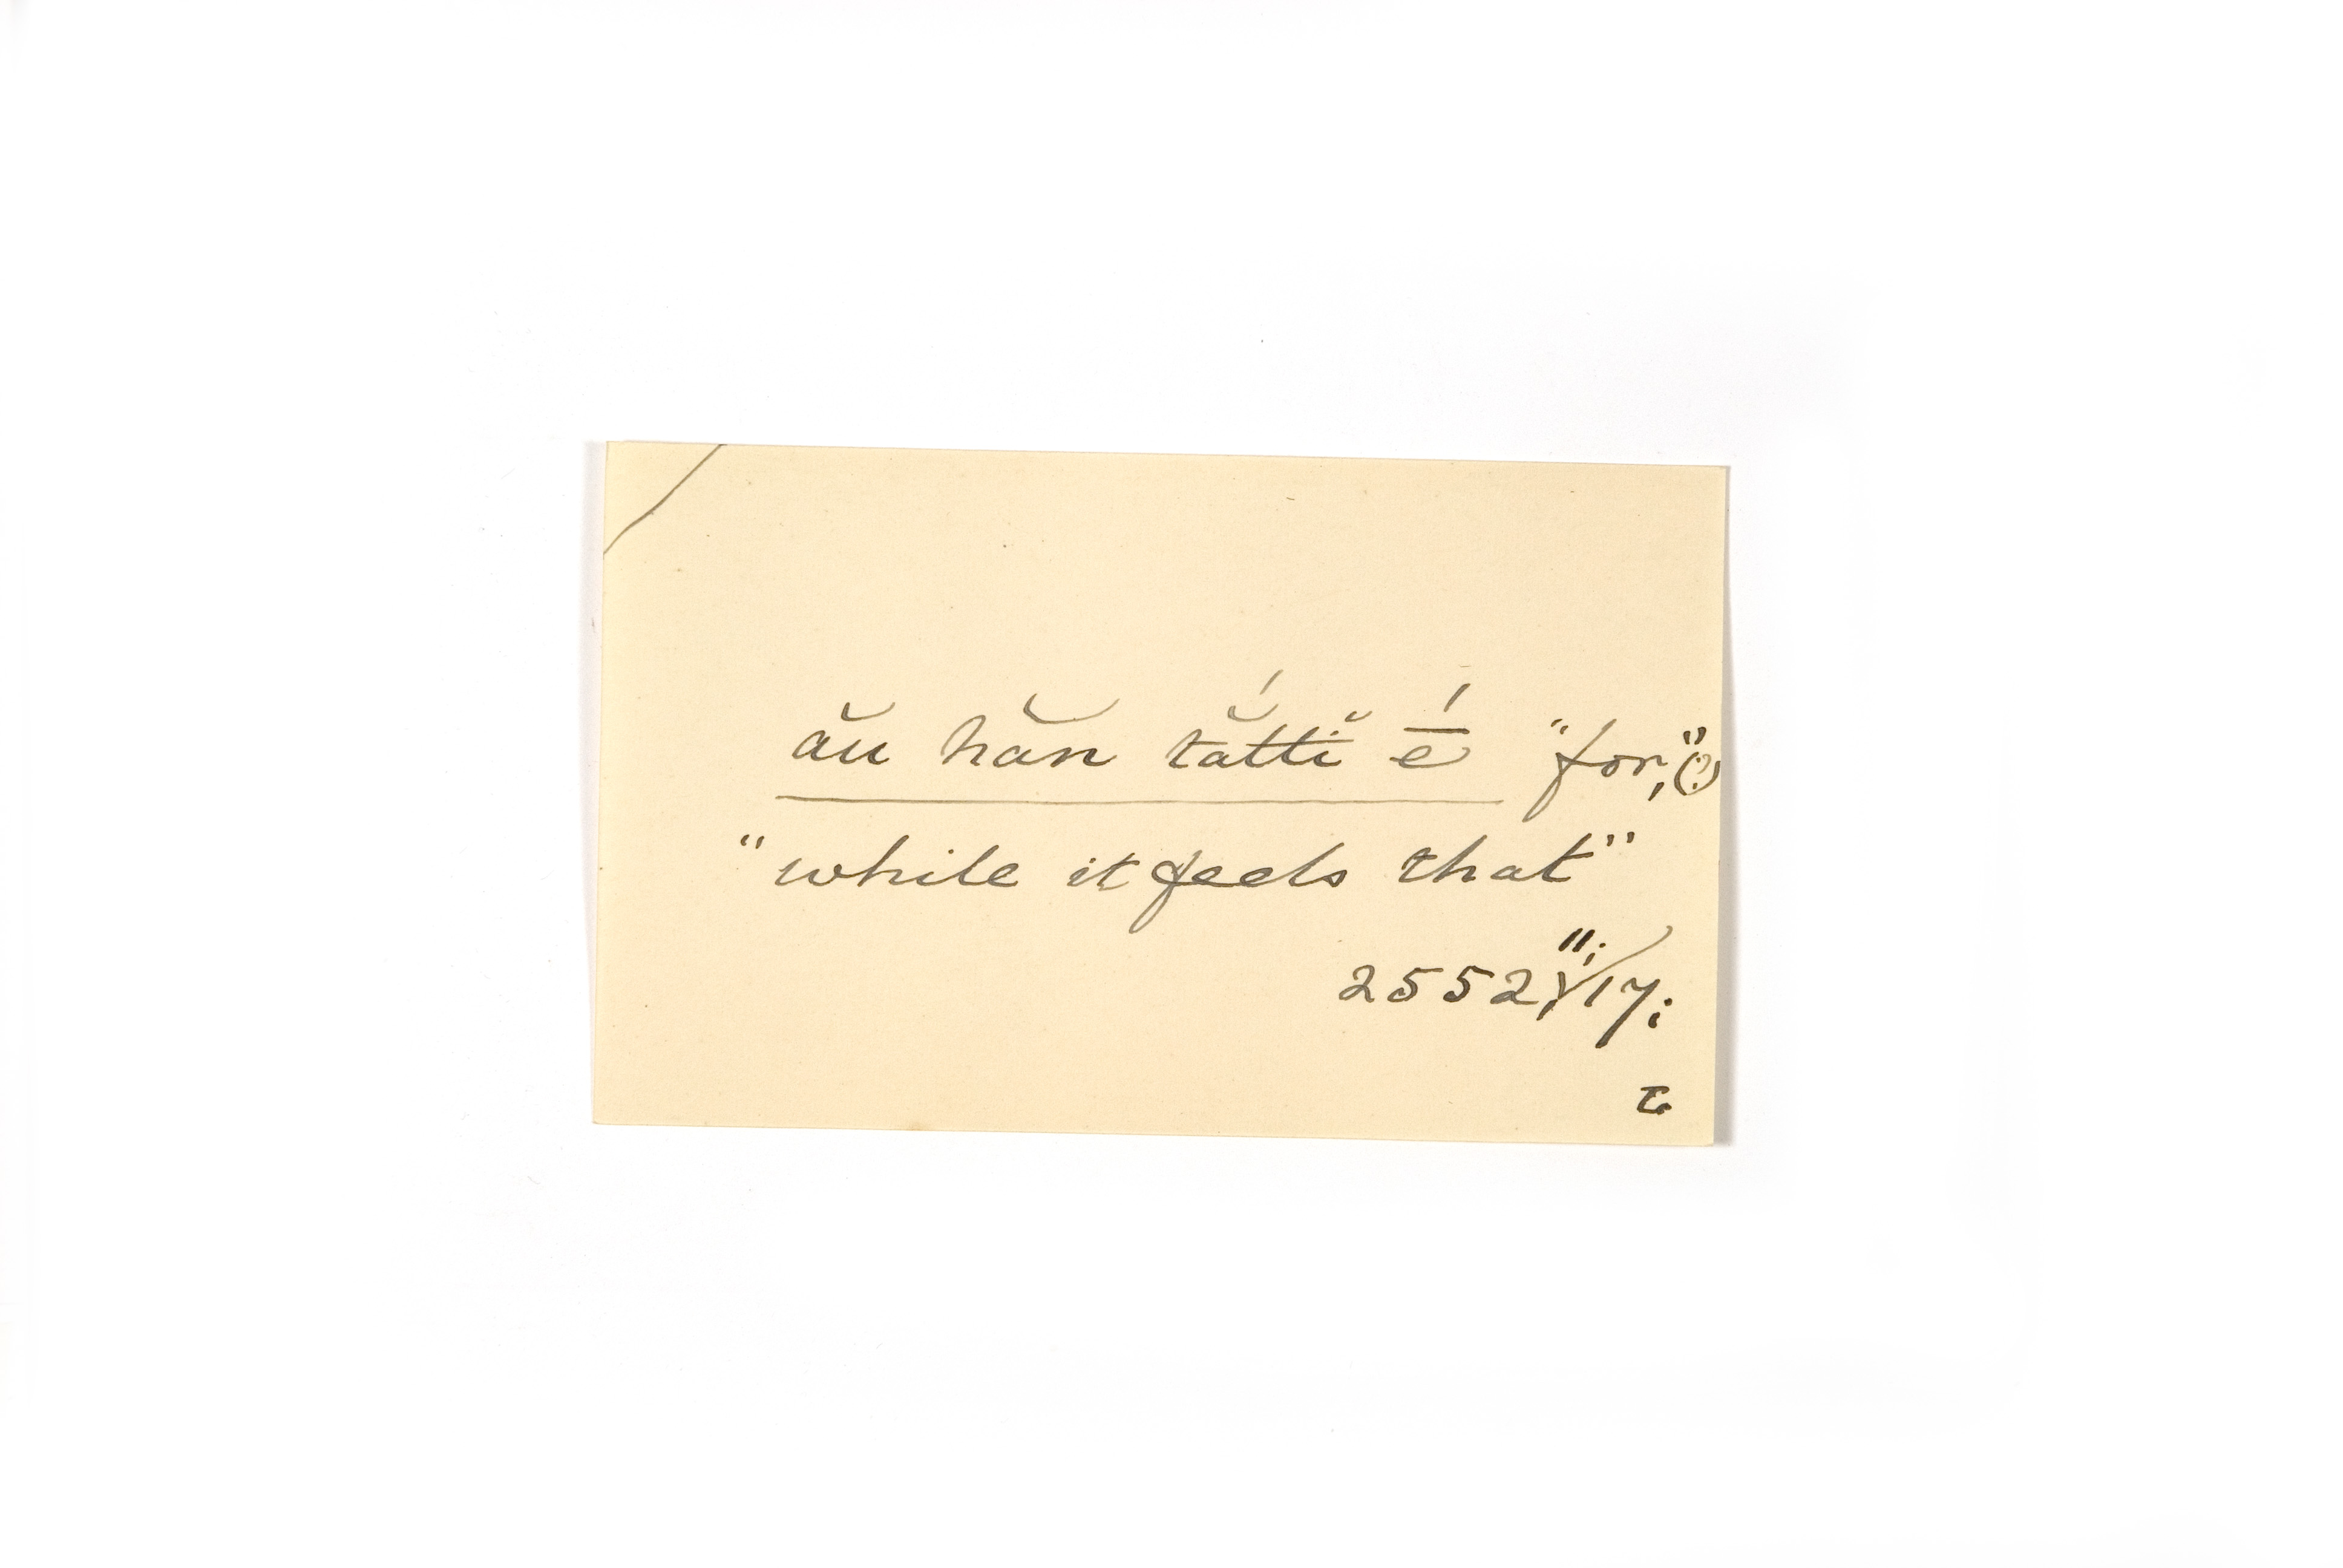 ău hăn tắttĭ ḗ "for,"(?)
"while it feels that"
2552,